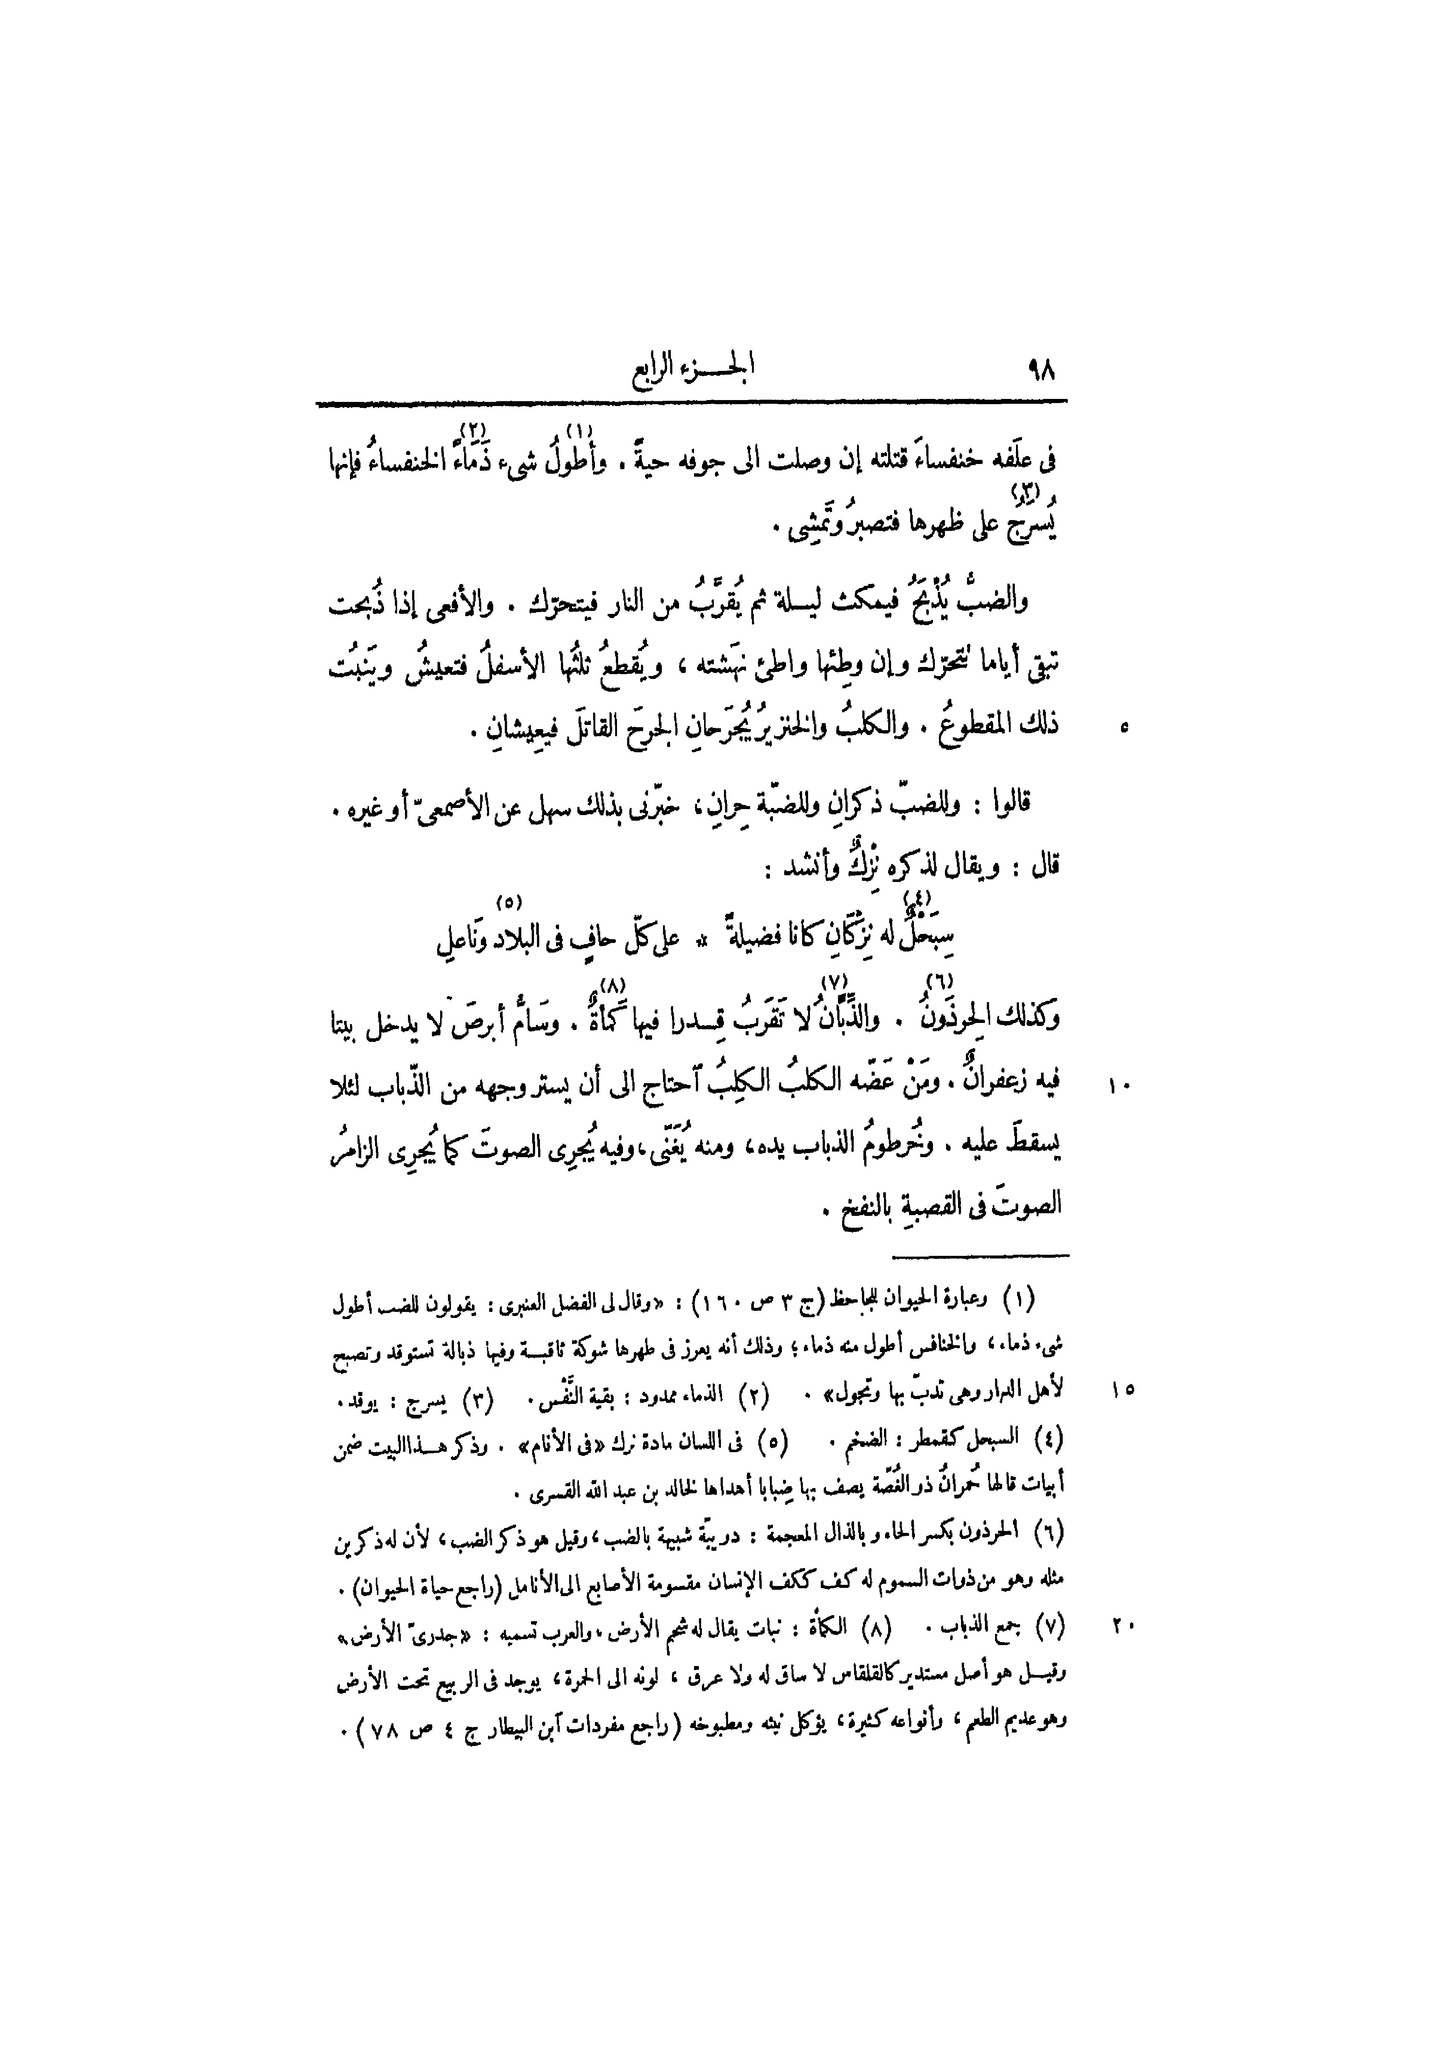 ٩٨ الجـزء الرابع
فى علَفه خنفساءَ قتلته إن وصلت الى جوفه حيةً . وأطولُ(١) شىء ذَمَاءً(٢) الخنفساءُ فإنها
يُسرَجُ(٣) على ظهرها فتصبرُ وتَمشِى .
والضبُّ يُذْبَحُ فيمكث ليـلة ثم يُقرَّبُ من النار فيتحرّك . والأفعى إذا ذُبحت
تبقى أياما تتحرّك وإن وطِئها واطئ نهَشته ، ويُقطعُ ثلثُها الأسفلُ فتعيشُ ويَنبُت
ذلك المقطوعُ . والكلبُ والخنزيرُ يُجرَحانِ الجرحَ القاتلَ فيعِيشانِ . ٥
قالوا : وللضبّ ذكرانِ وللضبّة حِرانِ، خبّرنى بذلك سهل عن الأصمعىّ أو غيره .
قال : ويقال لذكره نِزْكٌ وأنشد :
سِبَحْلٌ(٤) له نِزْكَانِ كانا فضيلةً * على كلّ حافٍ فى البلاد(٥) ونَاعلِ
وكذلك الحِرذَونُ(٦) . والذِّبَّانُ(٧) لا تَقرَبُ قِـدرا فيها كَمْأةٌ(٨) . وسَامُّ أبرصَ لا يدخل بيتا
فيه زعفرانٌ . ومَنْ عَضّه الكلبُ الكلِبُ ٱحتاج الى أن يستر وجهه من الذّباب لئلا ١٠
يسقطَ عليه . وخُرطومُ الذباب يده، ومنه يُغَنّى، وفيه يُجرِى الصوتَ كما يُجرِى الزامرُ
الصوتَ فى القصبةِ بالنفخ .
(١) وعبارة الحيوان للجاحظ (ج ٣ ص ١٦٠) : «وقال لى الفضل العنبرى : يقولون للضب أطول
شىء ذماء، والخنافس أطول منه ذماء؛ وذلك أنه يعرز فى ظهرها شوكة ثاقبـة وفيها ذبالة تستوقد وتصبح
لأهل الدار وهى تدبّ بها وتجول» . (٢) الذماء ممدود : بقية النَّفْس . (٣) يسرج : يوقد . ١٥
(٤) السبحل كقمطر : الضخم . (٥) فى اللسان مادة نزك «فى الأنام» . وذكر هـذا البيت ضمن
أبيات قالها حُمرانُ ذو الغُصّة يصف بها ضِبابا أهداها لخالد بن عبد الله القسرى .
(٦) الحرذون بكسر الحاء وبالذال المعجمة : دويبّة شبيهة بالضب، وقيل هو ذكر الضب، لأن له ذكرين
مثله وهو من ذوات السموم له كف ككف الإنسان مقسومة الأصابع الى الأنامل (راجع حياة الحيوان) .
(٧) جمع الذباب . (٨) الكمأة : نبات يقال له شحم الأرض، والعرب تسميه : «جدرىّ الأرض» ٢٠
وقيـل هو أصل مستدير كالقلقاس لا ساق له ولا عرق ، لونه الى الحمرة، يوجد فى الربيع تحت الأرض
وهو عديم الطعم ، وأنواعه كثيرة، يؤكل نيئه ومطبوخه (راجع مفردات ٱبن البيطار ج ٤ ص ٧٨) .